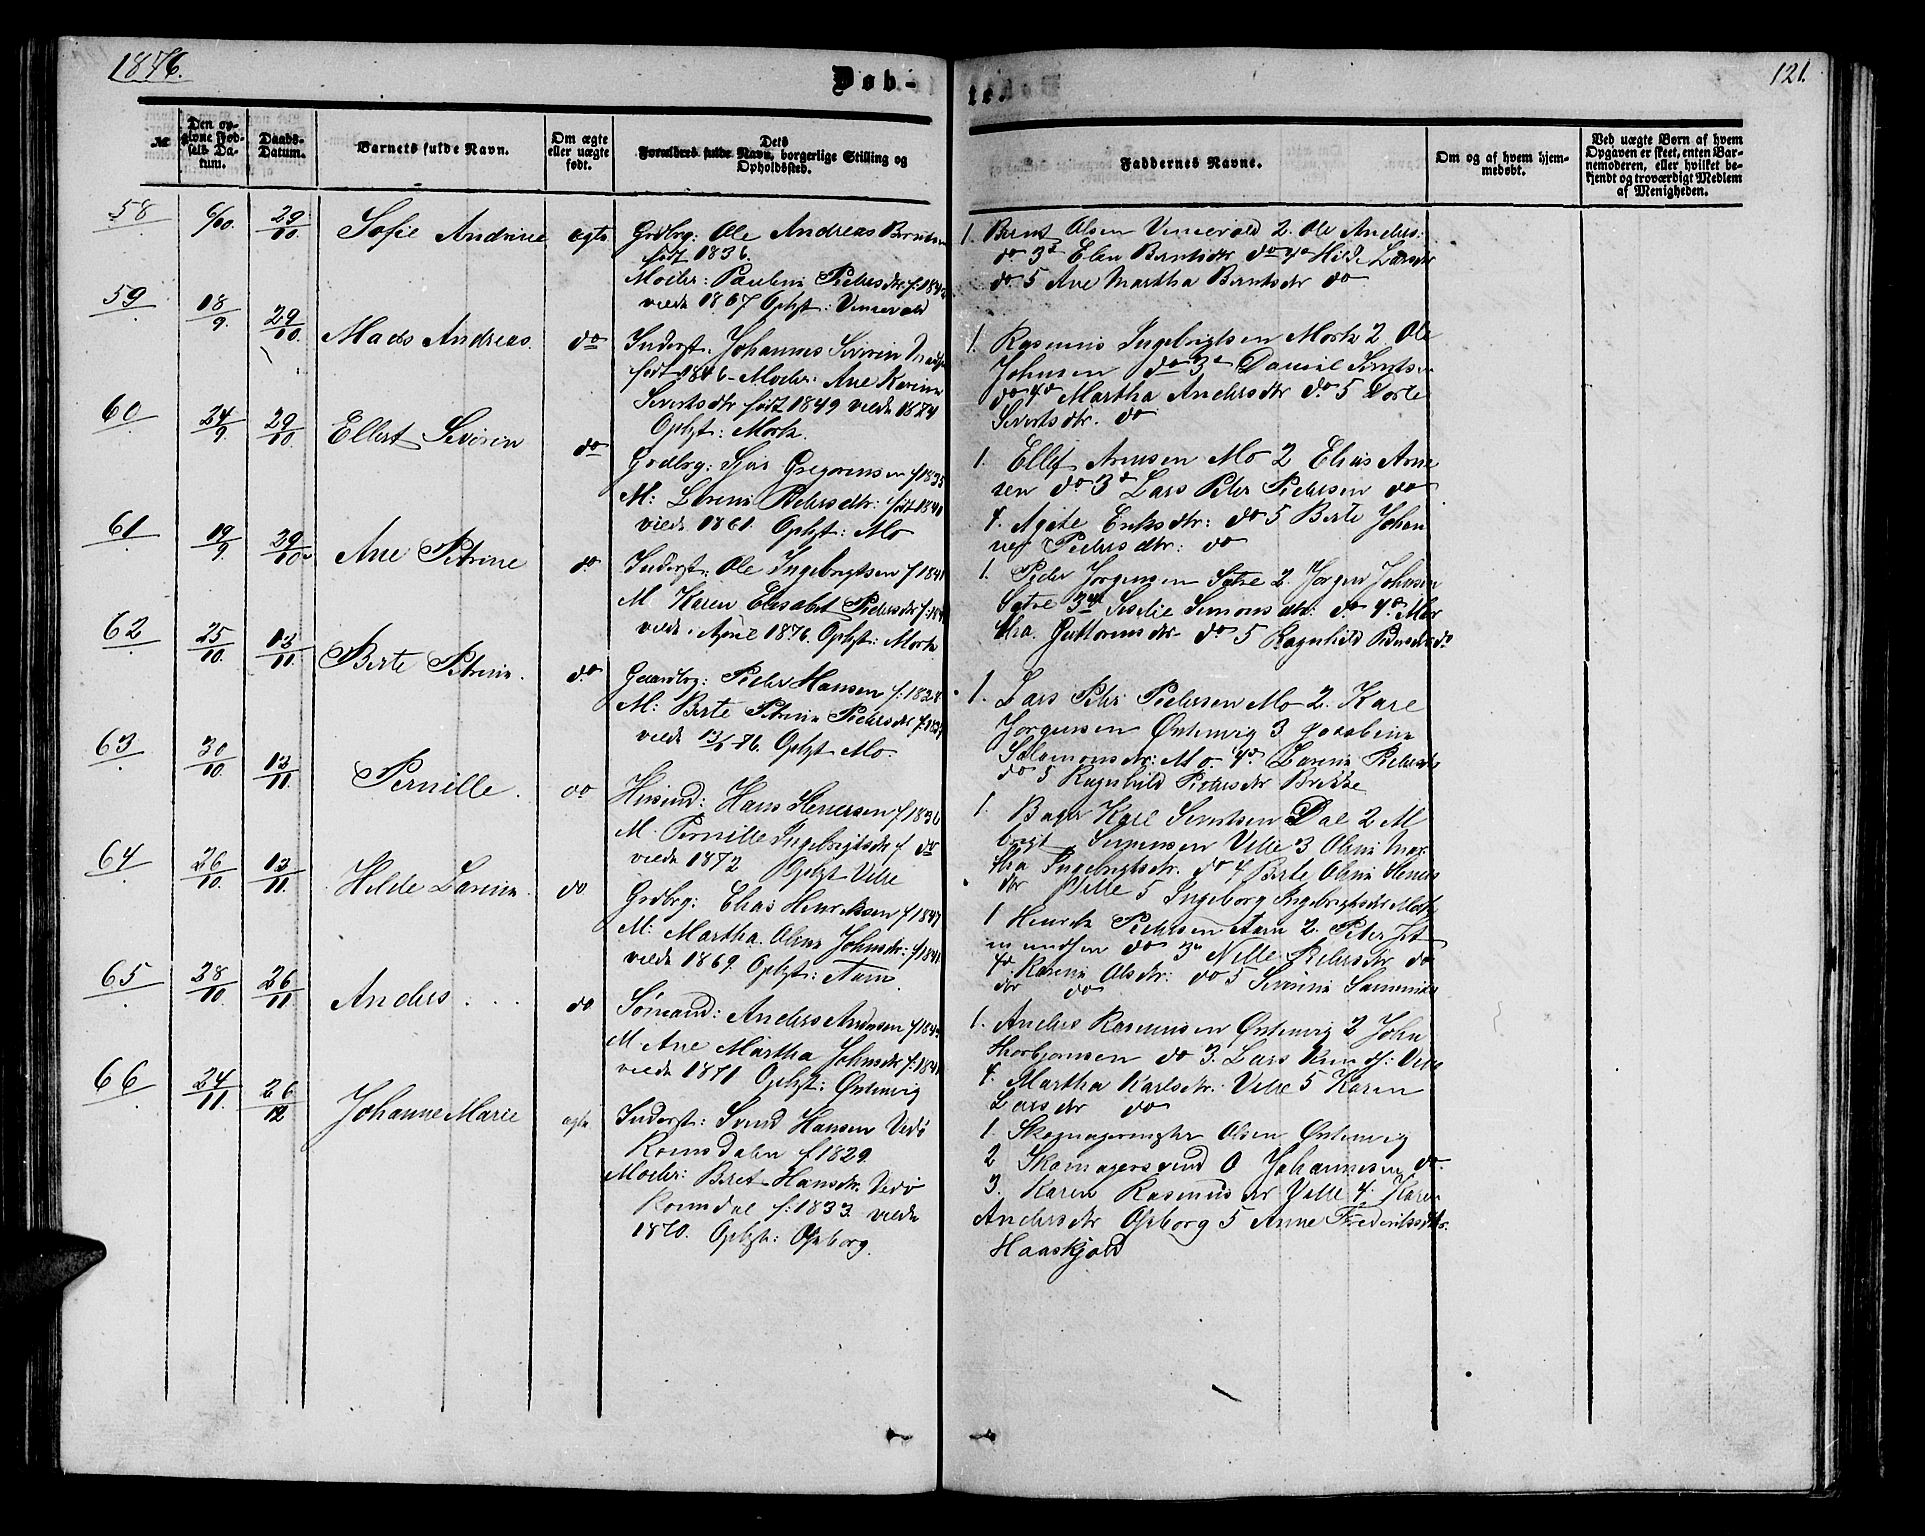 1876.
Døb-
te
121.
№
Den opgivne Fødsels Datum.
Daabs-Datum.
Barnets fulde Navn.
Om ægte eller uægte født.
Dets Forældres fulde Navn, borgerlige Stilling og Opholdssted.
Faddernes Navne.
Om og af hvem hjemmedøbt.
Ved uægte Børn af hvem Opgaven er skeet, enten Barnemoderen, eller hvilket bekjendt og troværdigt Medlem af Menigheden.
58 6/10. 29/10. Sofie Andrine ægte
Grdbrg: Ole Andreas Berntsen
født 1836.
Moder: Pauline Pedersdtr f:
viede 1867 Ophgt:
1. Bernt Olsen 2. Ole Anders:
do 3d Elen Berntsdtr do 4do Hilde Larsdtr
do 5 Ane Martha Berntsdtr do
59 18/9. 29/10. Mads Andreas. do
Inderst. Johannes Siverin
født 1846 Moder: Ane Karine
Sivertsdtr født 1849 viede 1874
Ophgt: Mork.
1. Rasmus Ingebrigtsen Mork 2. Ole
Johnsen do 3d Daniel Sivertsen
do 4do Martha Andersdtr do 5 Dorte
Sivertsdtr. do
60 24/9. 29/10. Ellert Severin do
Grdbrg: Sjur Gregoriusen f 1835
M: Lovise Pedersdtr: født 1841
viede 1861. Ophgt: Mo
1. Ellef Arnesen Mo 2 Elias Arne
sen do 3d Lars Peter Pedersen do
4. Agate Eriksdtr: do 5 Berte Johan
ne Pedersdtr: do
61 19/9 29/10. Ane Petrine do
Inderst: Ole Ingebrigtsen f 1841
M Karen Elisabet Pedersdtr f:
viede April 1876. Ophgt: Mork
1. Peder Jørgensen Sætre 2. Jørgen Johnsen
Sætre 3die Seselie Simonsdtr: do 4do Mar
tha Guttormsdtr do 5 Ragnhild do
62 25/10. 12/11. Berte Petrine. do
Gaardbrg: Peder Hansen f: 1828
M: Berte Petrine Pedersdtr
viede 76. Ophgt Mo.
1. Lars Peter Pedersen Mo 2. Karl
Jørgensen Østenvig 3 Jakobine
Salomonsdtr: Mo 4do Lovise Pedersdtr
do 5 Ragnhild Pedersdtr Brekke
63 30/10. 12/11. Pernille. do
Husmd: Hans Stenersen f. 1836
M. Pernille Ingebrigtsdtr f. do
viede 1872 Ophgt Velle
1. Karl Sivertsen Dal 2
Velle 3 Oline Mar
tha Ingebrigtsdtr. do 4 Berte Oline
dtr Velle 5 Ingeborg Ingebrigtsdtr
64 26/10. 12/11. Hilde Lovise. do
Grdbrg: Elias Henriksen f 1847
M: Martha Oline Johnsdtr: f 1841
viede 1869. Ophgt: Aam.
1 Henrik Pedersen Aam 2. Peter
mundsen do 3die Nelle Pedersdtr do
4do Karen Olsdtr: do 5 Severine
dtr do
65 28/10. 26/11 Anders. do
Sømand: Anders Andersen
M Ane Martha Johnsdtr f:
viede 1871 Ophgt: Østenvig
1. Anders Rasmussen Østenvig 2 John
Thorbjørnsen do 3. Lars Velle
4. Martha Karlsdtr: Velle 5 Karen
Larsdtr do
66 24/11. 26/12 Johanne Marie ægte
Inderst: Svend Hansen Vedø
Romsdalen f 1829.
Moder: Beret Hansdtr. Vedø
Romsdal f: 1833. viede
1870. Ophgt: Opborg.
1. Skomagermester Olsen Østenvig
2 Skomagersvend O Johannesen do
3. Karen Rasmusdtr Velle 4. Karen
Andersdtr Opborg 5 Anne Frederiksdtr.
Haaskjold